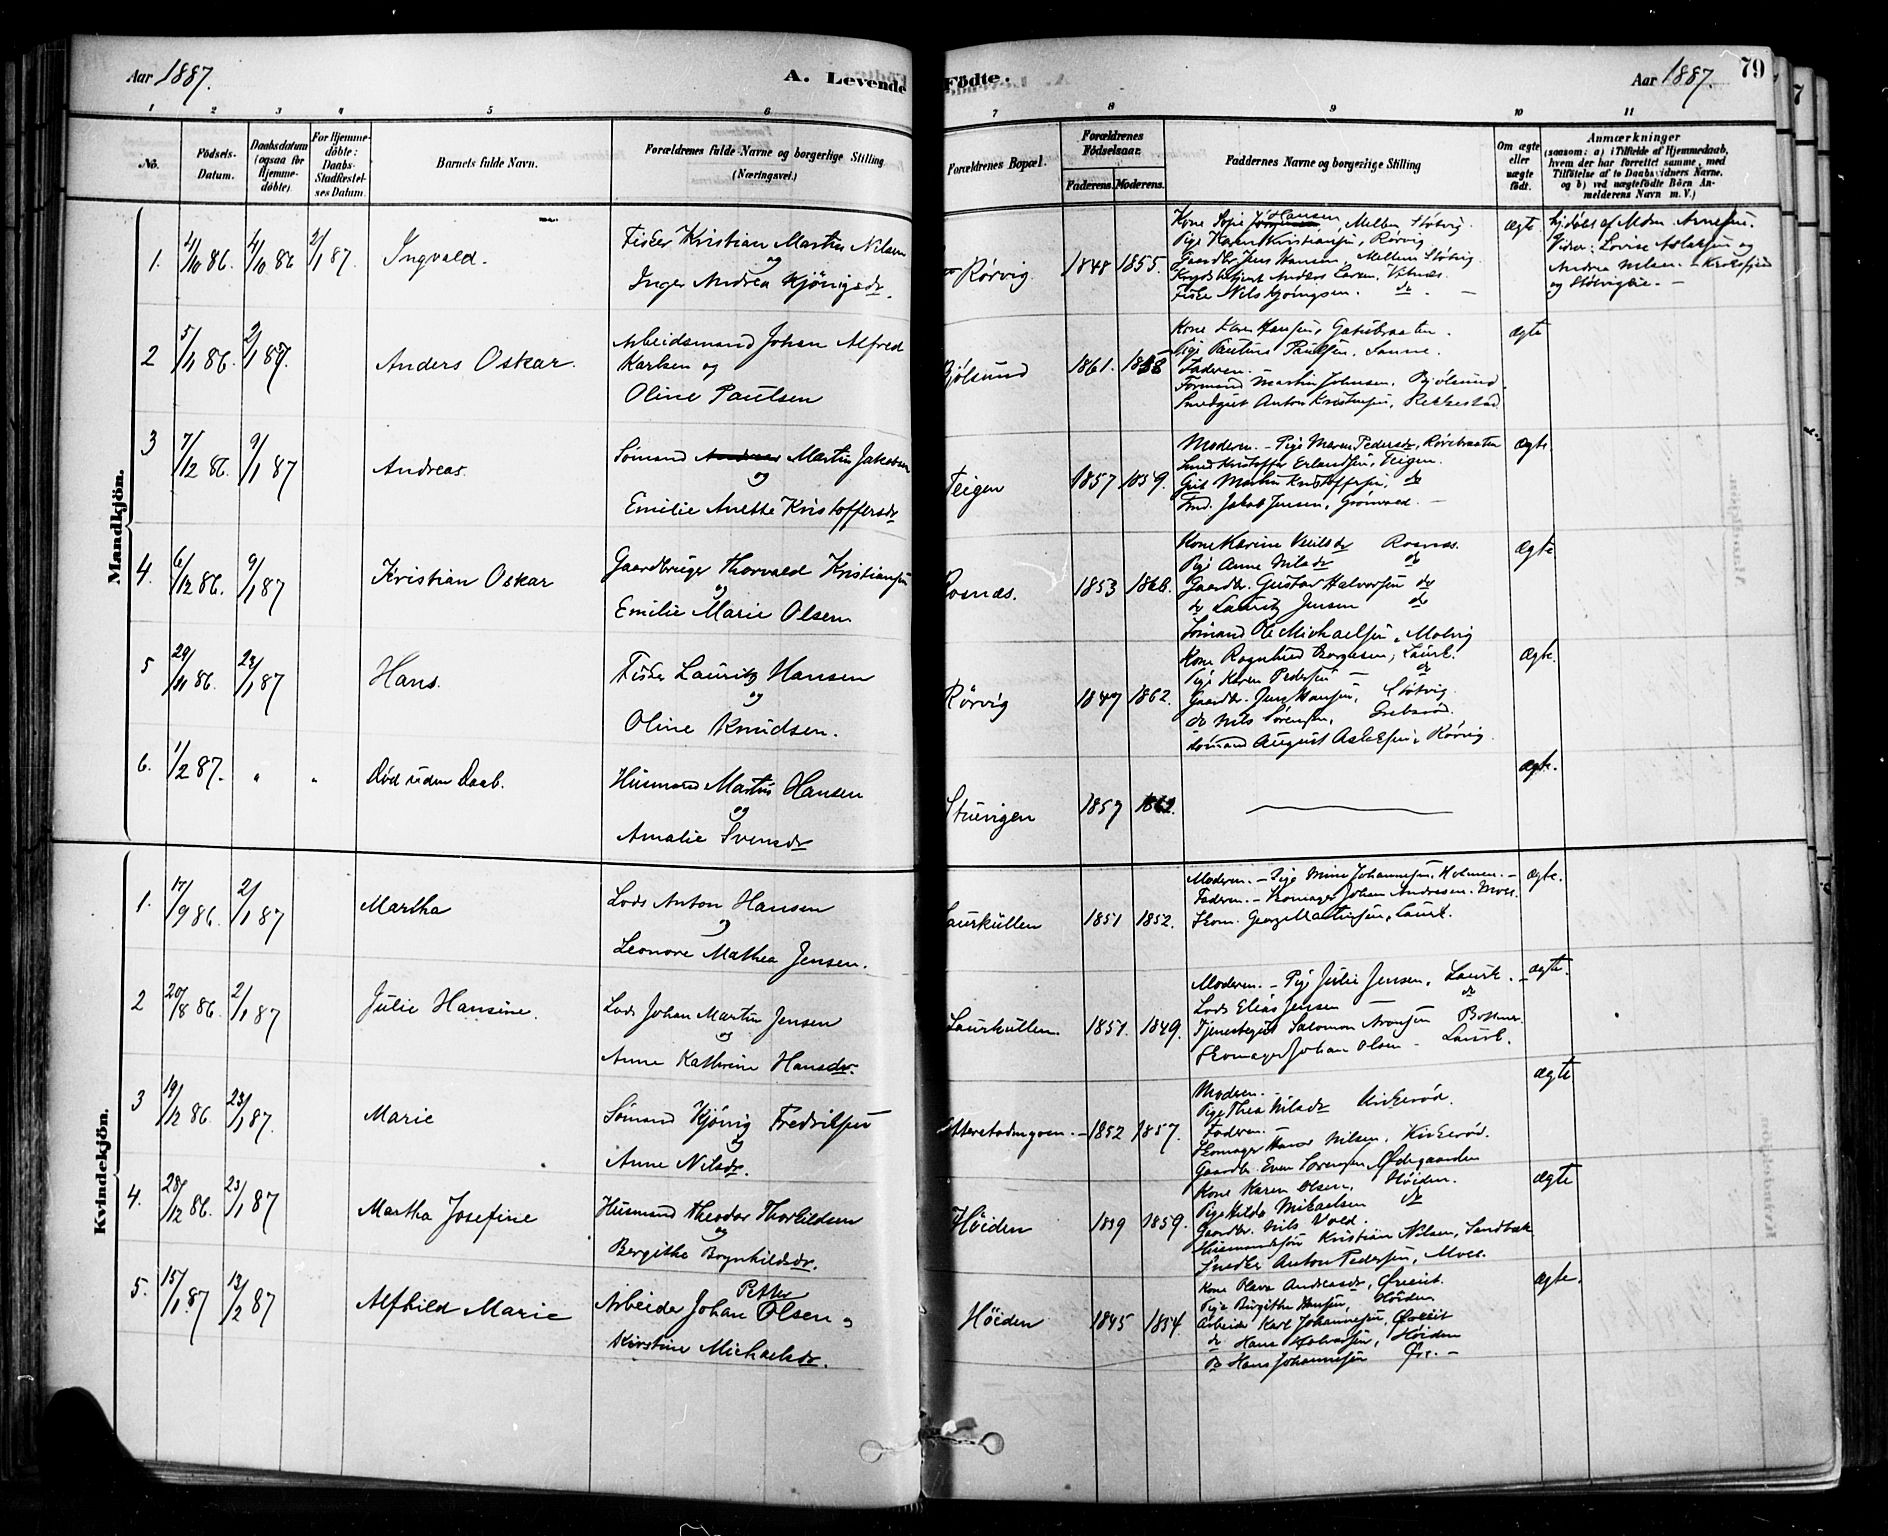 Aar 1887. A. Levende Födte. Aar 1887. 79
1 2 3 4 5 6 7 8 9 10 11
No. Födsels-Datum. Daabsdatum (ogsaa for Hjemme-döbte). For Hjemme-döbte: Daabs-Stadfæstel-ses Datum. Barnets fulde Navn. Forældrenes fulde Navne og borgerlige Stilling (Næringsvei.) Forældrenes Bopæl. Forældrenes Födselsaar. Faderens. Moderens. Faddernes Navne og borgerlige Stilling Om ægte eller uægte födt. Anmærkninger (saasom: a) i Tilfælde af Hjemmedaab, hvem der har forrettet samme, med Tilföielse af to Daabsvidners Navne, og b) ved uægtefödte Börn An-melderens Navn m. V.)
Mandkjön.
1. 2/1 87. Ingvald. Fisker Kristian Martin Nilsen
og
Inger Andrea Kjönigsdr
Rörvig. 1848 1855.
Kone Sofie Hansen, Mellem Støtvig.
Pige Karen Kristiansen, Rørvig
Gaardbr Jens Hansen, Mellem Støtvig
Anders Larsen, Vitnæs.
Fisker Nils Kjönigsen. do
Ægte
Hjdøbt af Arnesen.
Vidner: Lovise Aslaksen og
Andrea Nilsen
2 5/11 86. 2/1 87. Anders Oskar. Arbeidsmand Johan Alfred
Karlsen og
Oline Paulsen
Bjölsund 1861. 1858
Kone Karen Hansen,
Pige Pauline Paulsen, Sanne.
Faderen.
Formand Martin Johnsen, Bjölsund.
Smedgut Anton Kristensen, Rekkestad
Ægte
3 7/12 86. 9/1 87 Andreas. Sømand Martin Jakobsen
og
Emilie Anette Kristoffersdr
Teigen 1857 1859.
Moderen. - Pige Maren Pedersdr,
Smed Kristoffer Erlandsen, Teigen.
Gut Martin Kristoffersen, do
Smd. Jakob Jensen,
Ægte
4. 6/12 86. 9/1 87 Kristian Oskar Gaardbruger Thorvald Kristiansen
og
Emilie Marie Olsen
Rosnæs. 1853 1866.
Kone Karine Nilsdr Rosnæs.
Pige Anne Nilsdr do
Gaardbr. Gustav Halvorsen do
do Lauritz Jensen do
Sømand Ole Michaelsen, Molvig
Ægte
5 29/11 86. 23/1 87 Hans. Fisker Lauritz Hansen
og
Oline Knudsen.
Rørvig 1847 1862.
Kone Ragnhild Borgesen, Laurk.
Pige Karen Pedersen do
Gaardbr. Jens Hansen, Støtvig.
do Nils Sørensen,
Sømand August Aslaksen, Rørvig.
Ægte.
6. 1/2 87. " " Død uden Daab. Husmand Martin Hansen
og
Amalie Svensdr
Stuvigen 1857 1862.
Ægte.
Kvindekjön.
1. 17/9 86. 2/1 87 Martha Lods Anton Hansen
og
Leonore Mathea Jensen.
Laurkullen 1851 1852.
Moderen. - Pige Mina Johannesen, Holmen. -
Faderen. - Skomager Johan Andresen. Moss.
Skom. Georg Martinsen, Laurk.
Ægte.
2 20/8 86. 2/1 87 Julie Hansine. Lods Johan Martin Jensen
og
Anne Kathrine Hansdr.
Laurkullen. 1851. 1849.
Moderen. - Pige Julie Jensen, Laurk.
Lods Elias Jensen do
Tjenestegut Salomon Aronsen
Skomager Johan Olsen - Laurk.
Ægte.
3 19/12 86. 23/1 87. Marie Sømand Kjönig Fredriksen
og
Anne Nilsdr.
1852 1857.
Moderen. -
Pige Thea Nilsdr Kirkerød.
Faderen. -
Skomager Hans Nilsen, Kirkerød.
Gaardbr. Even Sørensen Ødegaarden
Ægte
4. 28/12 86. 23/1 87 Martha Josefine Husmand Theodor Thorkildsen
og
Bergithe Brynhildsdr.
Höiden 1859.
Kone Karen Olsen, Höiden.
Pige Hilda Mikaelsen do
Gaardbr. Nils Vold.
Husmandssøn Kristian Nilsen, Sandbæk
Snedker Anton Pedersen, Moss.
Ægte
5. 15/1 87 13/2 87 Alfhild Marie Arbeider Johan Petter Olsen og
Kirstine Michaelsdr.
Höiden 1845 1854.
Kone Olava Andreasdr,
Pige Birgithe Hansen, Höiden
Arbeider Karl Johannesen,
do Hans Halvorsen, Höiden
do Hans Johannesen
Ægte.